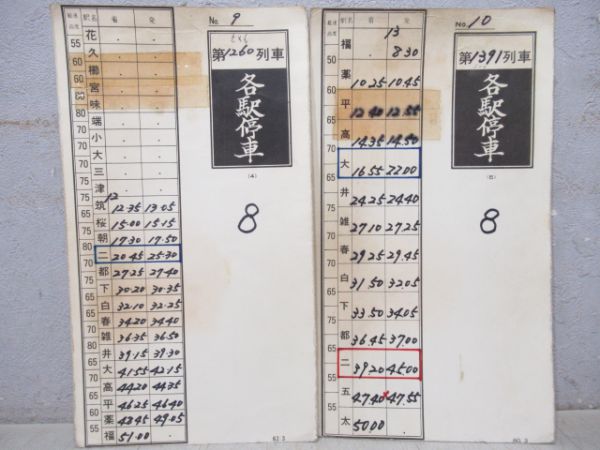 No. 9
第1260列車
各駅停車
(4)
8
最高速度 駅名 着 発
55 花 . .
久 . .
60 櫛 . .
60 宮 . .
味 . .
端 . .
小 . .
大 . .
三 . .
津 . .
75 筑 12 12.35 13.05
桜 15.00 15.15
朝 17.30 17.50
80 二 20.45 25.30
70 都 27.25 27.40
下 30.20 30.35
白 32.10 32.25
春 34.20 34.40
雑 36.35 36.50
井 39.15 39.30
大 41.55 42.15
高 44.20 44.35
平 46.25 46.40
薬 48.45 49.05
福 51.00 .
No. 10
第1391列車
各駅停車
(5)
8
駅名 着 発
福 13 8.30
50
薬 10.25 10.45
平 12.40 12.55
70
高 14.35 14.50
大 16.55 22.00
井 24.25 24.40
雑 27.10 27.25
春 29.25 29.45
白 31.50 32.05
下 33.50 34.05
都 36.45 37.00
二 39.20 45.00
五 47.40 47.55
太 50.00